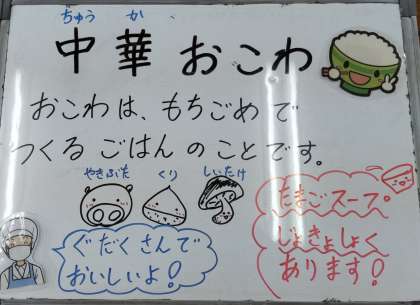 ちゅう か
中華 おこわ
おこわは、もちごめで
つくる ごはん のことです。
やきぶた くり しいたけ
ぐだくさんで
おいしいよ!
たまごスープ
じょきょしょく
あります!